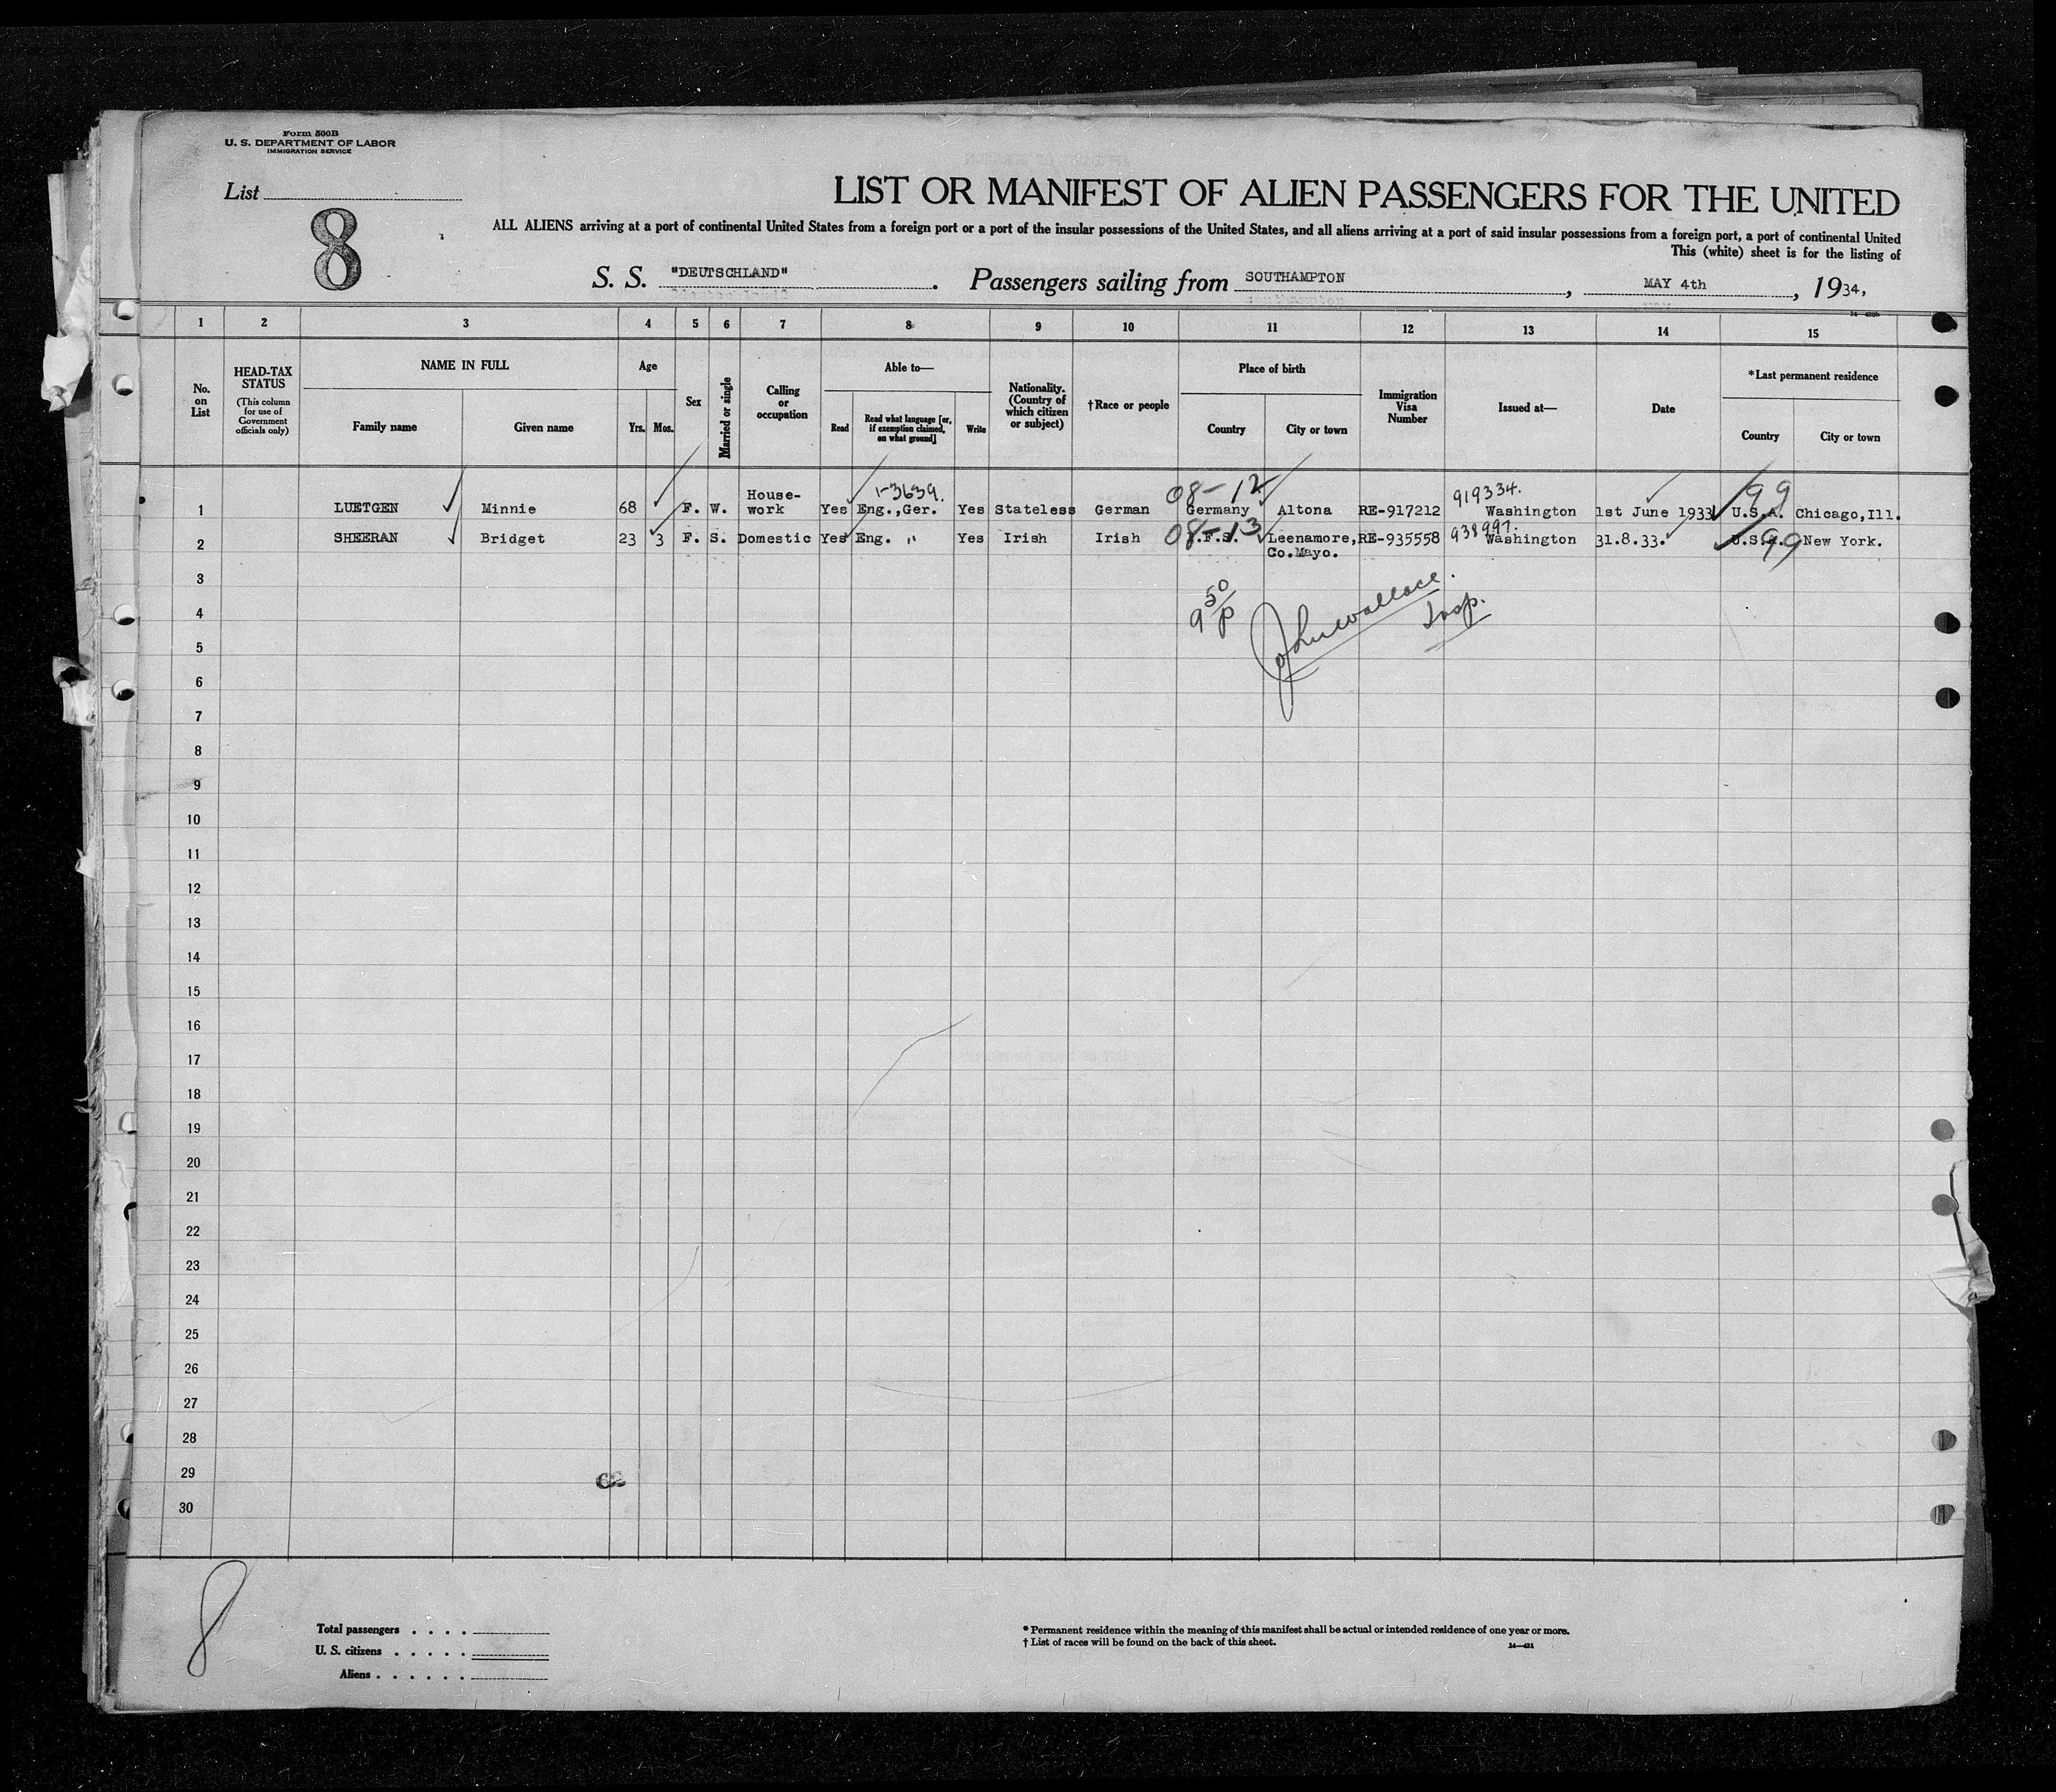 Form 500B
U. S. DEPARTMENT OF LABOR
IMMIGRATION SERVICE
List
8
LIST OR MANIFEST OF ALIEN PASSENGERS FOR THE UNITED
ALL ALIENS arriving at a port of continental United States from a foreign port or a port of the insular possessions of the United States, and all aliens arriving at a port of said insular possessions from a foreign port, a port of continental United
This (white) sheet is for the listing of
S. S. "DEUTSCHLAND" . Passengers sailing from SOUTHAMPTON , MAY 4th , 1934,
1 2 3 4 5 6 7 8 9 10 11 12 13 14 15
No. on List
HEAD-TAX STATUS
(This column for use of Government officials only)
NAME IN FULL
Family name
Given name
Age
Yrs.
Mos.
Sex
Married or single
Calling or occupation
Able to—
Read
Read what language [or, if exemption claimed, on what ground]
Write
Nationality. (Country of which citizen or subject)
†Race or people
Place of birth
Country
City or town
Immigration Visa Number
Issued at—
Date
*Last permanent residence
Country
City or town
1-3639. 08-12 919334. 99
1 LUETGEN Minnie 68 F. W. House-work Yes Eng.,Ger. Yes Stateless German Germany Altona RE-917212 Washington 1st June 1933 U.S.A. Chicago,Ill.
08-13 938997. 99
2 SHEERAN Bridget 23 3 F. S. Domestic Yes Eng. " Yes Irish Irish I.F.S. Leenamore, Co.Mayo. RE-935558 Washington 31.8.33. U.S.A. New York.
3
9 50/p John Wallace. Insp.
4
5
6
7
8
9
10
11
12
13
14
15
16
17
18
19
20
21
22
23
24
25
26
27
28
29
30
8
Total passengers . . . .
U. S. citizens . . . . .
Aliens . . . . . .
* Permanent residence within the meaning of this manifest shall be actual or intended residence of one year or more.
† List of races will be found on the back of this sheet.
14—421